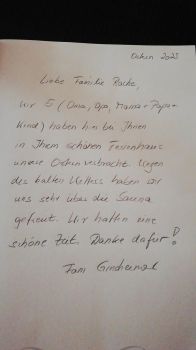 Ostern 2023
Liebe Familie Racke,
Wir 5 (Oma, Opa, Mama + Papa +
Kind) haben hier bei Ihnen
in Ihrem schönen Ferienhaus
unsere Ostern verbracht. Wegen
des kalten Wetters haben wir
uns sehr über die Sauna
gefreut. Wir hatten eine
schöne Zeit. Danke dafür!
Fam